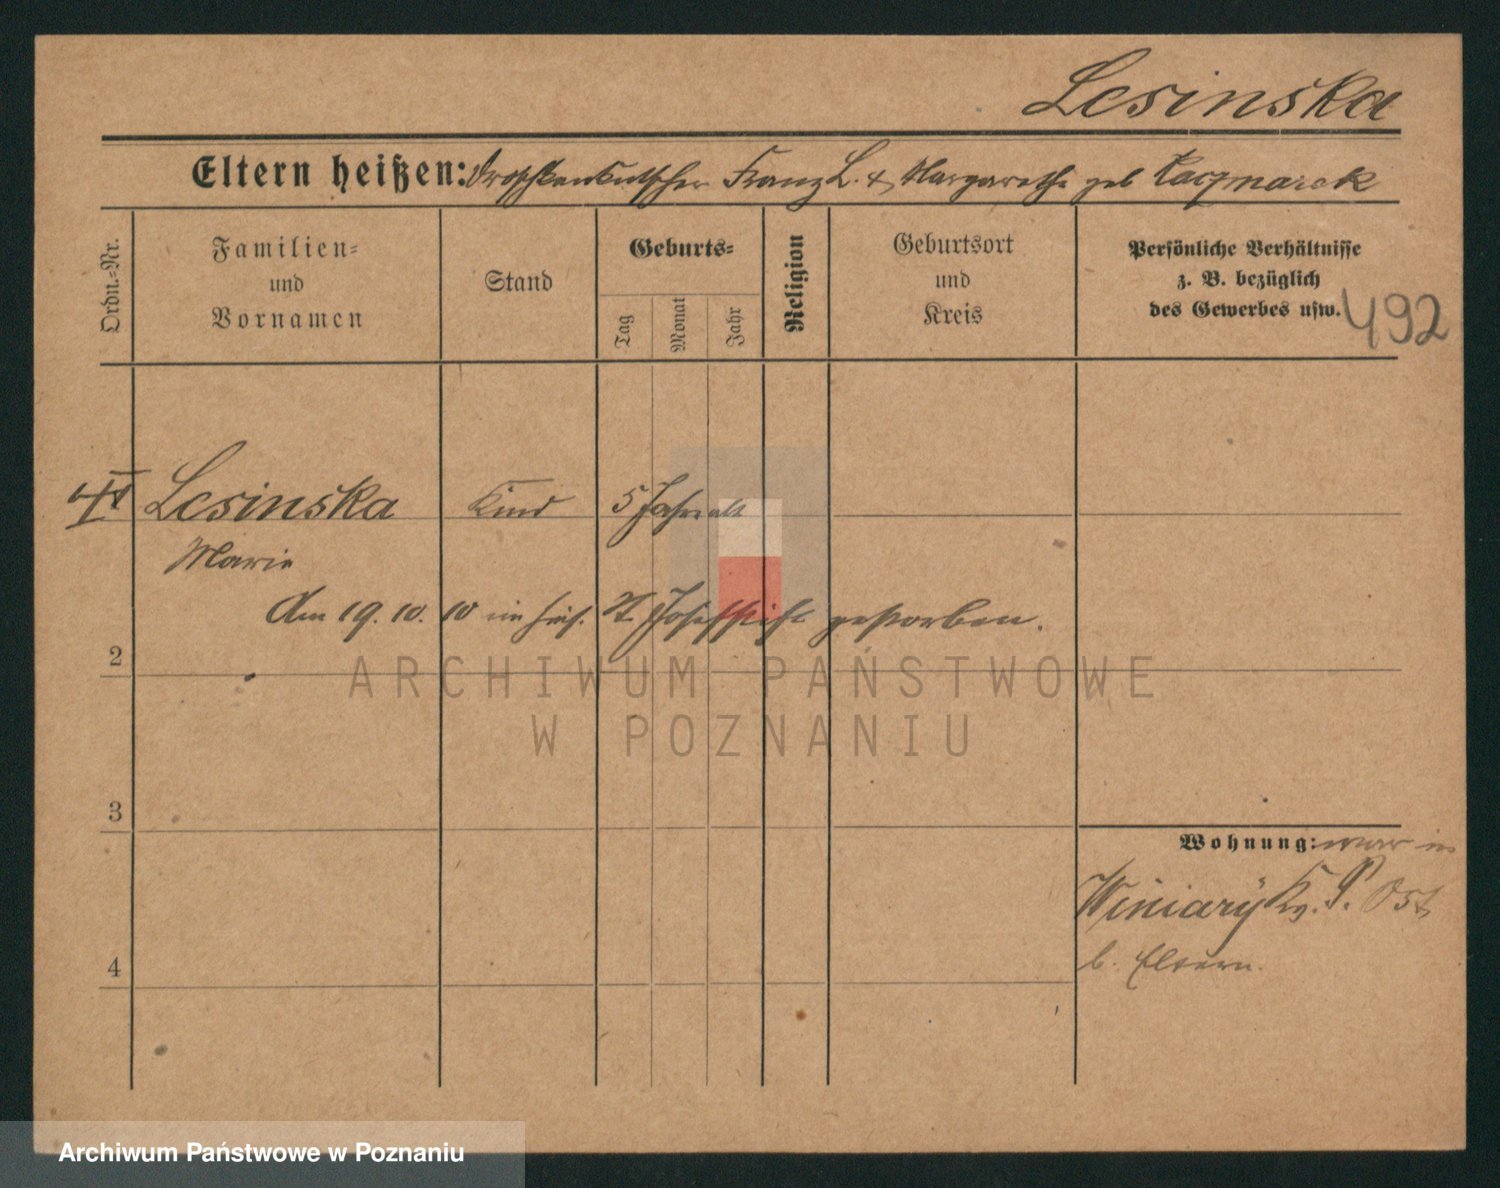 Lesinska
Eltern heißen: Droschkenkutscher Franz L. & Margarethe geb Kaczmarek
Ordn.-Nr.
Familien-
und
Vornamen
Stand
Geburts-
Tag
Monat
Jahr
Religion
Geburtsort
und
Kreis
Persönliche Verhältnisse
z. B. bezüglich
des Gewerbes usw.
492
Lesinska Kind 5 Jahre alt
Marie
Am 19. 10. 10 im St. Josefstift gestorben.
2
ARCHIWUM PAŃSTWOWE
W POZNANIU
3
Wohnung: war in
Winiary Kr. P. Ost
b. Eltern.
4
Archiwum Państwowe w Poznaniu